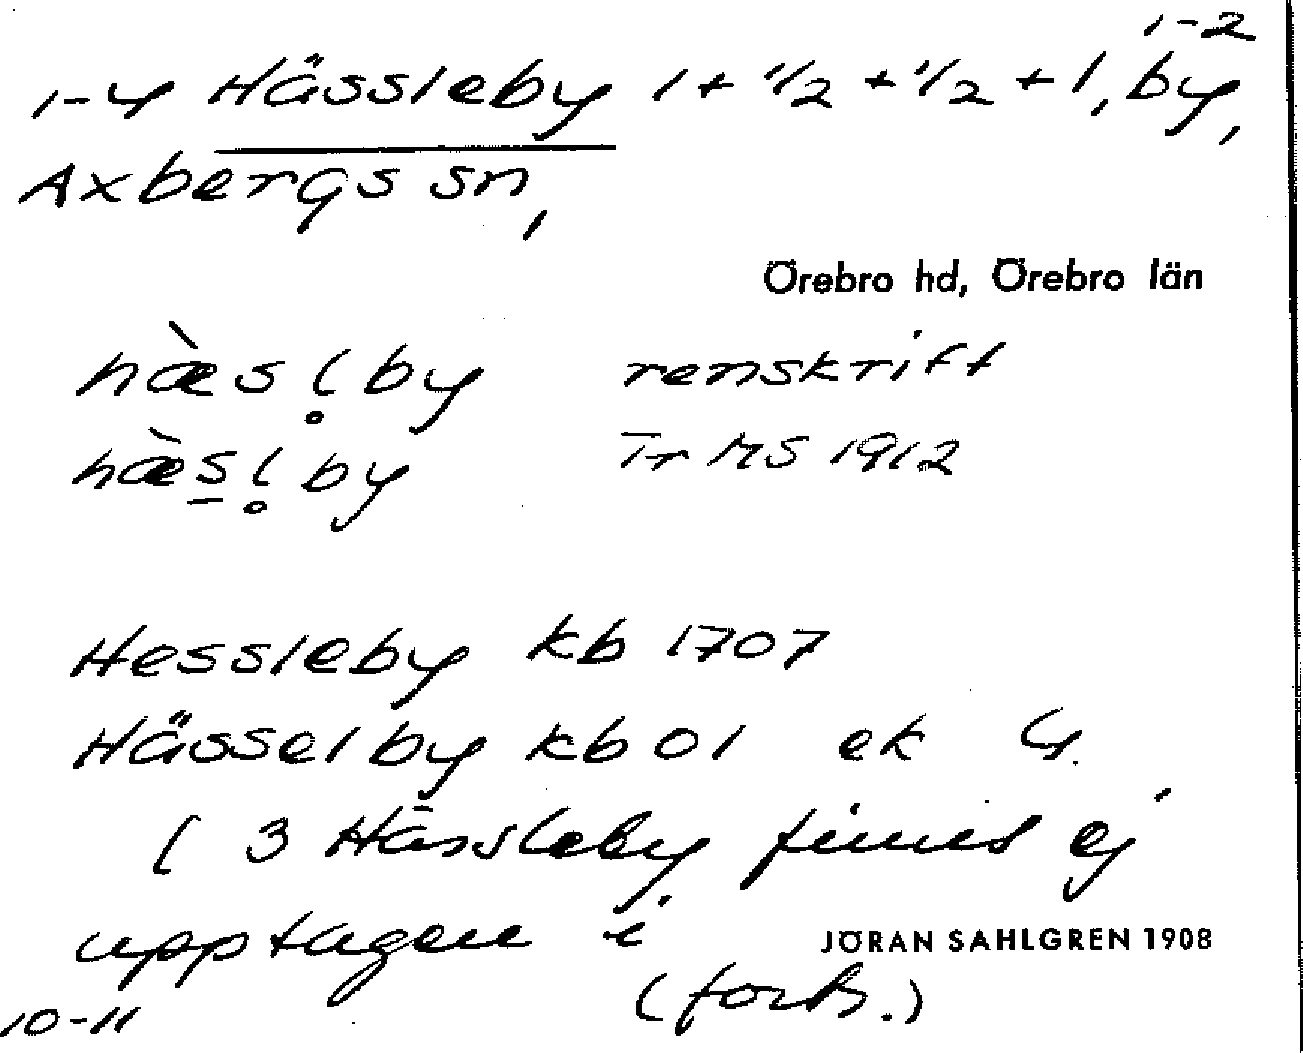 1-2
1-4 Hässleby 1+1/2+1/2+1, by,
Axbergs sn,
Örebro hd, Örebro län
hæ̀sl̥by renskrift
hæ̀s̱l̥by Tr MS 1912
Hessleby kb 1707
Hässelby kb 01 ek
( 3 Hässleby finnes ej
upptagen i JÖRAN SAHLGREN 1908
10-11 (forts.)